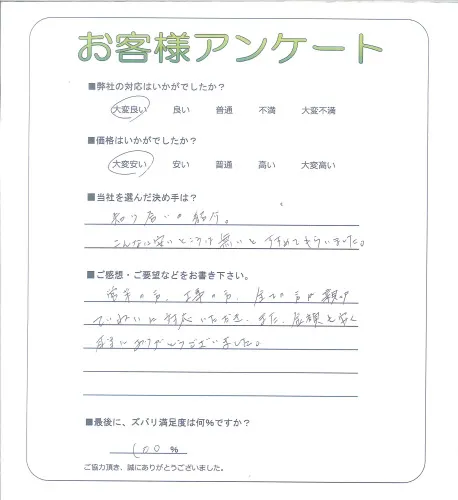 お客様アンケート
■弊社の対応はいかがでしたか？
大変良い 良い 普通 不満 大変不満
■価格はいかがでしたか？
大変安い 安い 普通 高い 大変高い
■当社を選んだ決め手は？
知り合いの紹介。
こんなに安いところは無いとすすめてもらいました。
■ご感想・ご要望などをお書き下さい。
営業の方、工事の方、全ての方が親切
ていねいに対応いただき、また、金額も安く
本当にありがとうございました。
■最後に、ズバリ満足度は何％ですか？
100 ％
ご協力頂き、誠にありがとうございました。